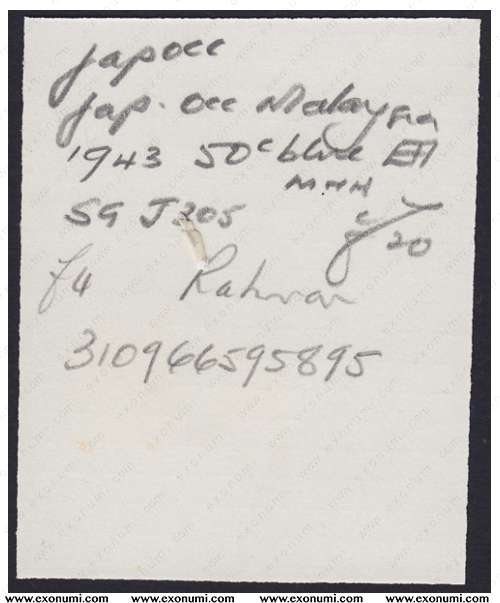 Jap occ
Jap. occ Malaysia
1943 50c blue
MNH
SG J305
20
£4 Rahman
310966595895
www.exonumi.com www.exonumi.com www.exonumi.com www.exonumi.com